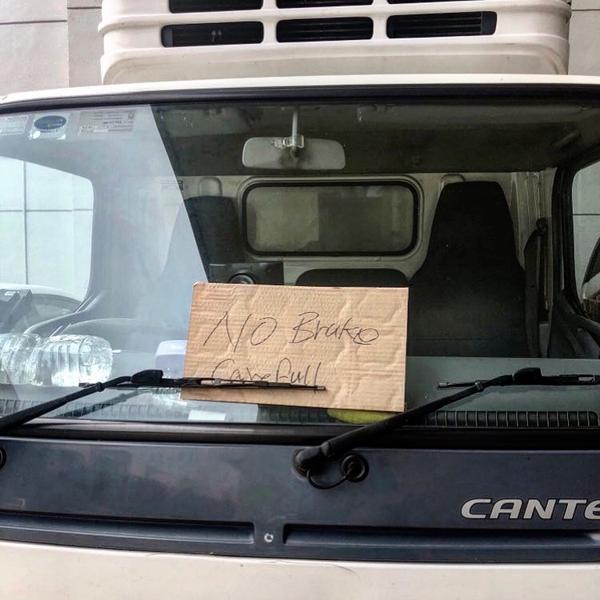 No Brake
Carefull
CANTE